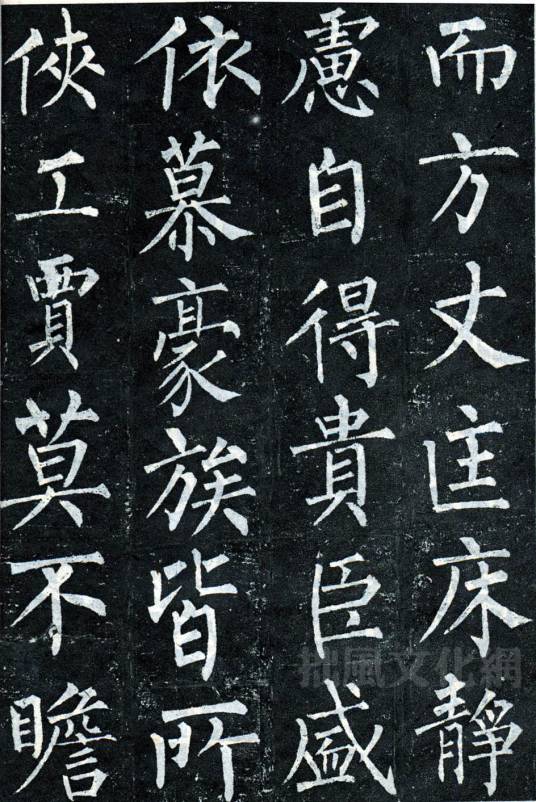 而方丈匡床靜
慮自得貴臣盛
依慕豪族皆所
俠工賈莫不瞻
拙風文化網